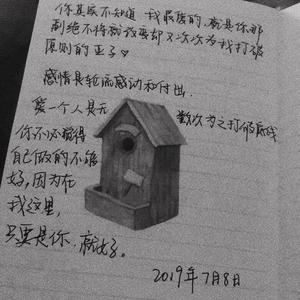 你其实不知道,我最爱的,就是你那
副绝不将就却要却又次次为我打破
原则的样子♡
感情是轮流感动和付出.
爱一个人是无 数次为之打破底线
你不必觉得
自己做的不够
好,因为在
我这里,
只要是你,就好。
2019年7月8日